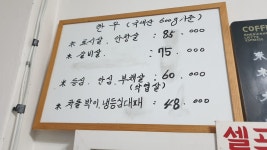 한우 (국내산 600g기준)
※ 토시살. 안창살 : 85.000
※ 갈비살 : 75.000
※ 등심. 안심. 부채살 : 60.000
(낙엽살)
※ 차돌박이, 냉동심대패 : 48.000
COFFEE
셀프